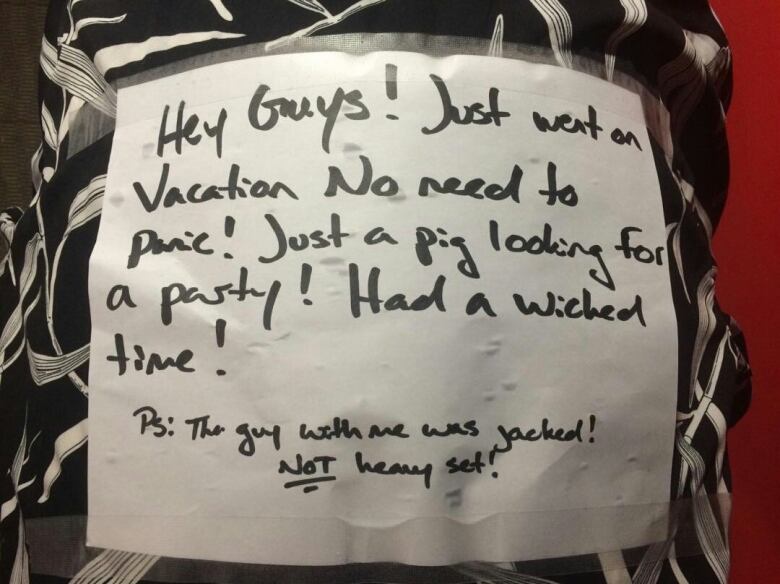 Hey Guys! Just went on
Vacation No need to
panic! Just a pig looking for
a party! Had a wicked
time!
Ps: The guy with me was jacked!
NOT heavy set!